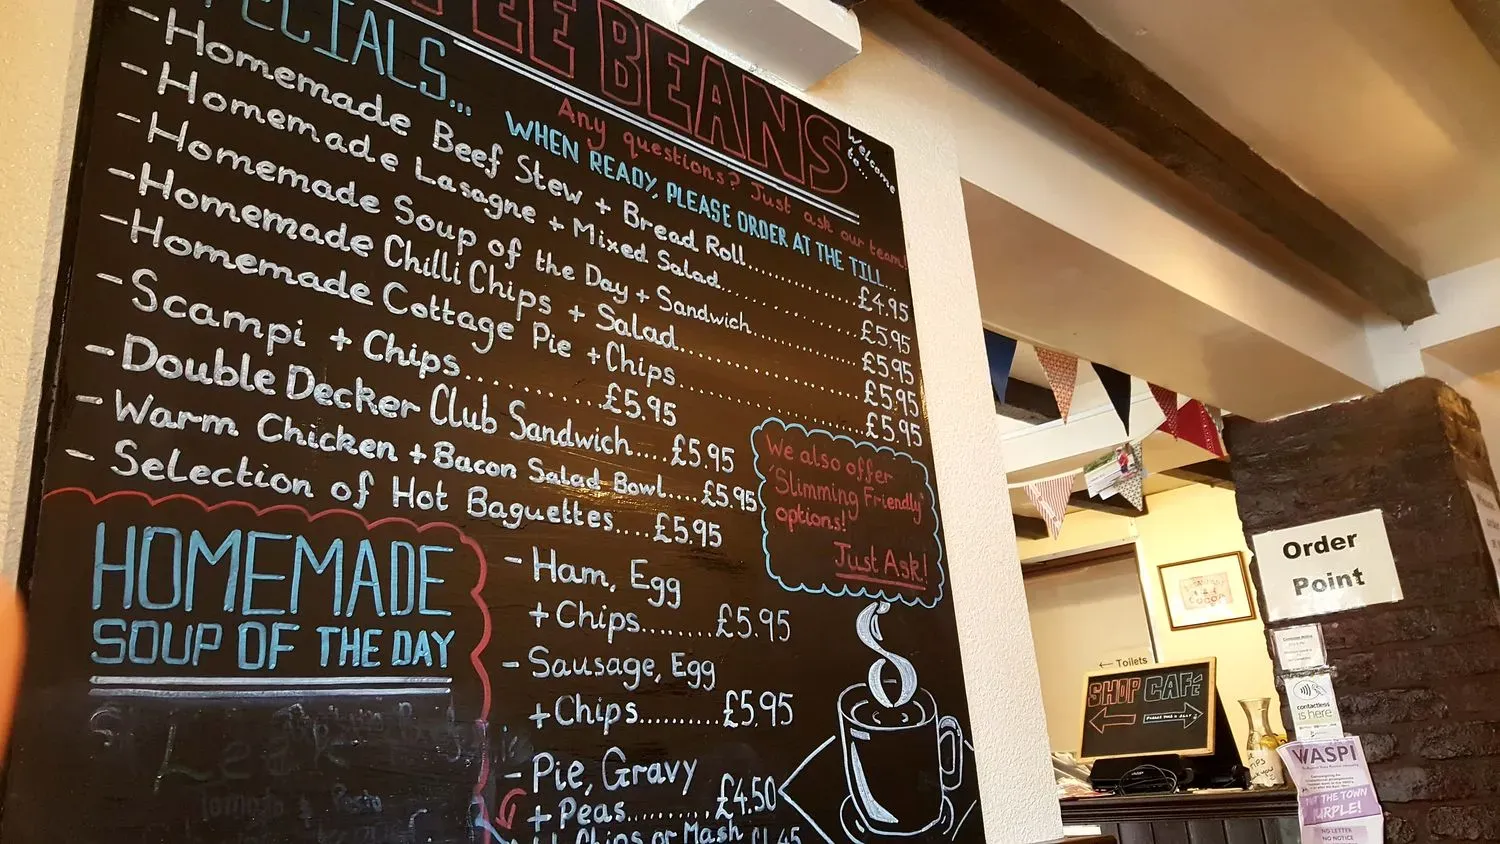 BEANS
Welcome
to...
Any questions? Just ask our team!
WHEN READY, PLEASE ORDER AT THE TILL...
- Homemade Beef Stew + Bread Roll............£4.95
- Homemade Lasagne + Mixed Salad............£5.95
- Homemade Soup of the Day + Sandwich............£5.95
- Homemade Chilli Chips + Salad............£5.95
- Homemade Cottage Pie + Chips............£5.95
- Scampi + Chips............£5.95
- Double Decker Club Sandwich....£5.95
- Warm Chicken + Bacon Salad Bowl....£5.95
- Selection of Hot Baguettes....£5.95
We also offer
'Slimming Friendly'
options!
Just Ask!
HOMEMADE
SOUP OF THE DAY
- Ham, Egg
+ Chips........£5.95
- Sausage, Egg
+ Chips.........£5.95
- Pie, Gravy
+ Peas.........£4.50
Chips or Mash
Leek
Order
Point
← Toilets
SHOP CAFÉ
contactless
is here
WASPI
THE TOWN
PURPLE!
NO LETTER
NO NOTICE